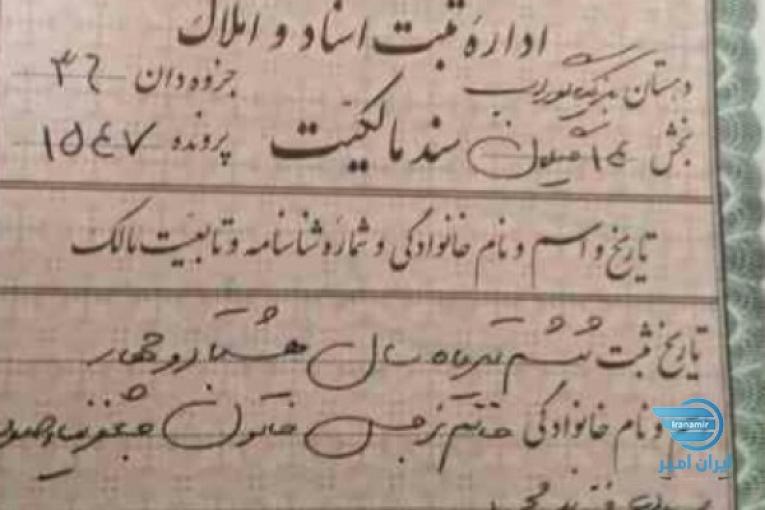 ادارهٔ ثبت اسناد و املاک
دهستان
جزوه‌دان ۴۶
بخش ۱۴ گیلان
سند مالکیت
پرونده ۱۵۴۷
تاریخ و اسم و نام خانوادگی و شماره شناسنامه و تابعیت مالک
تاریخ ثبت ششم تیرماه سال هشتاد و چهار
و نام خانوادگی خانم نرجس خاتون
Iranamir
ایران امیر